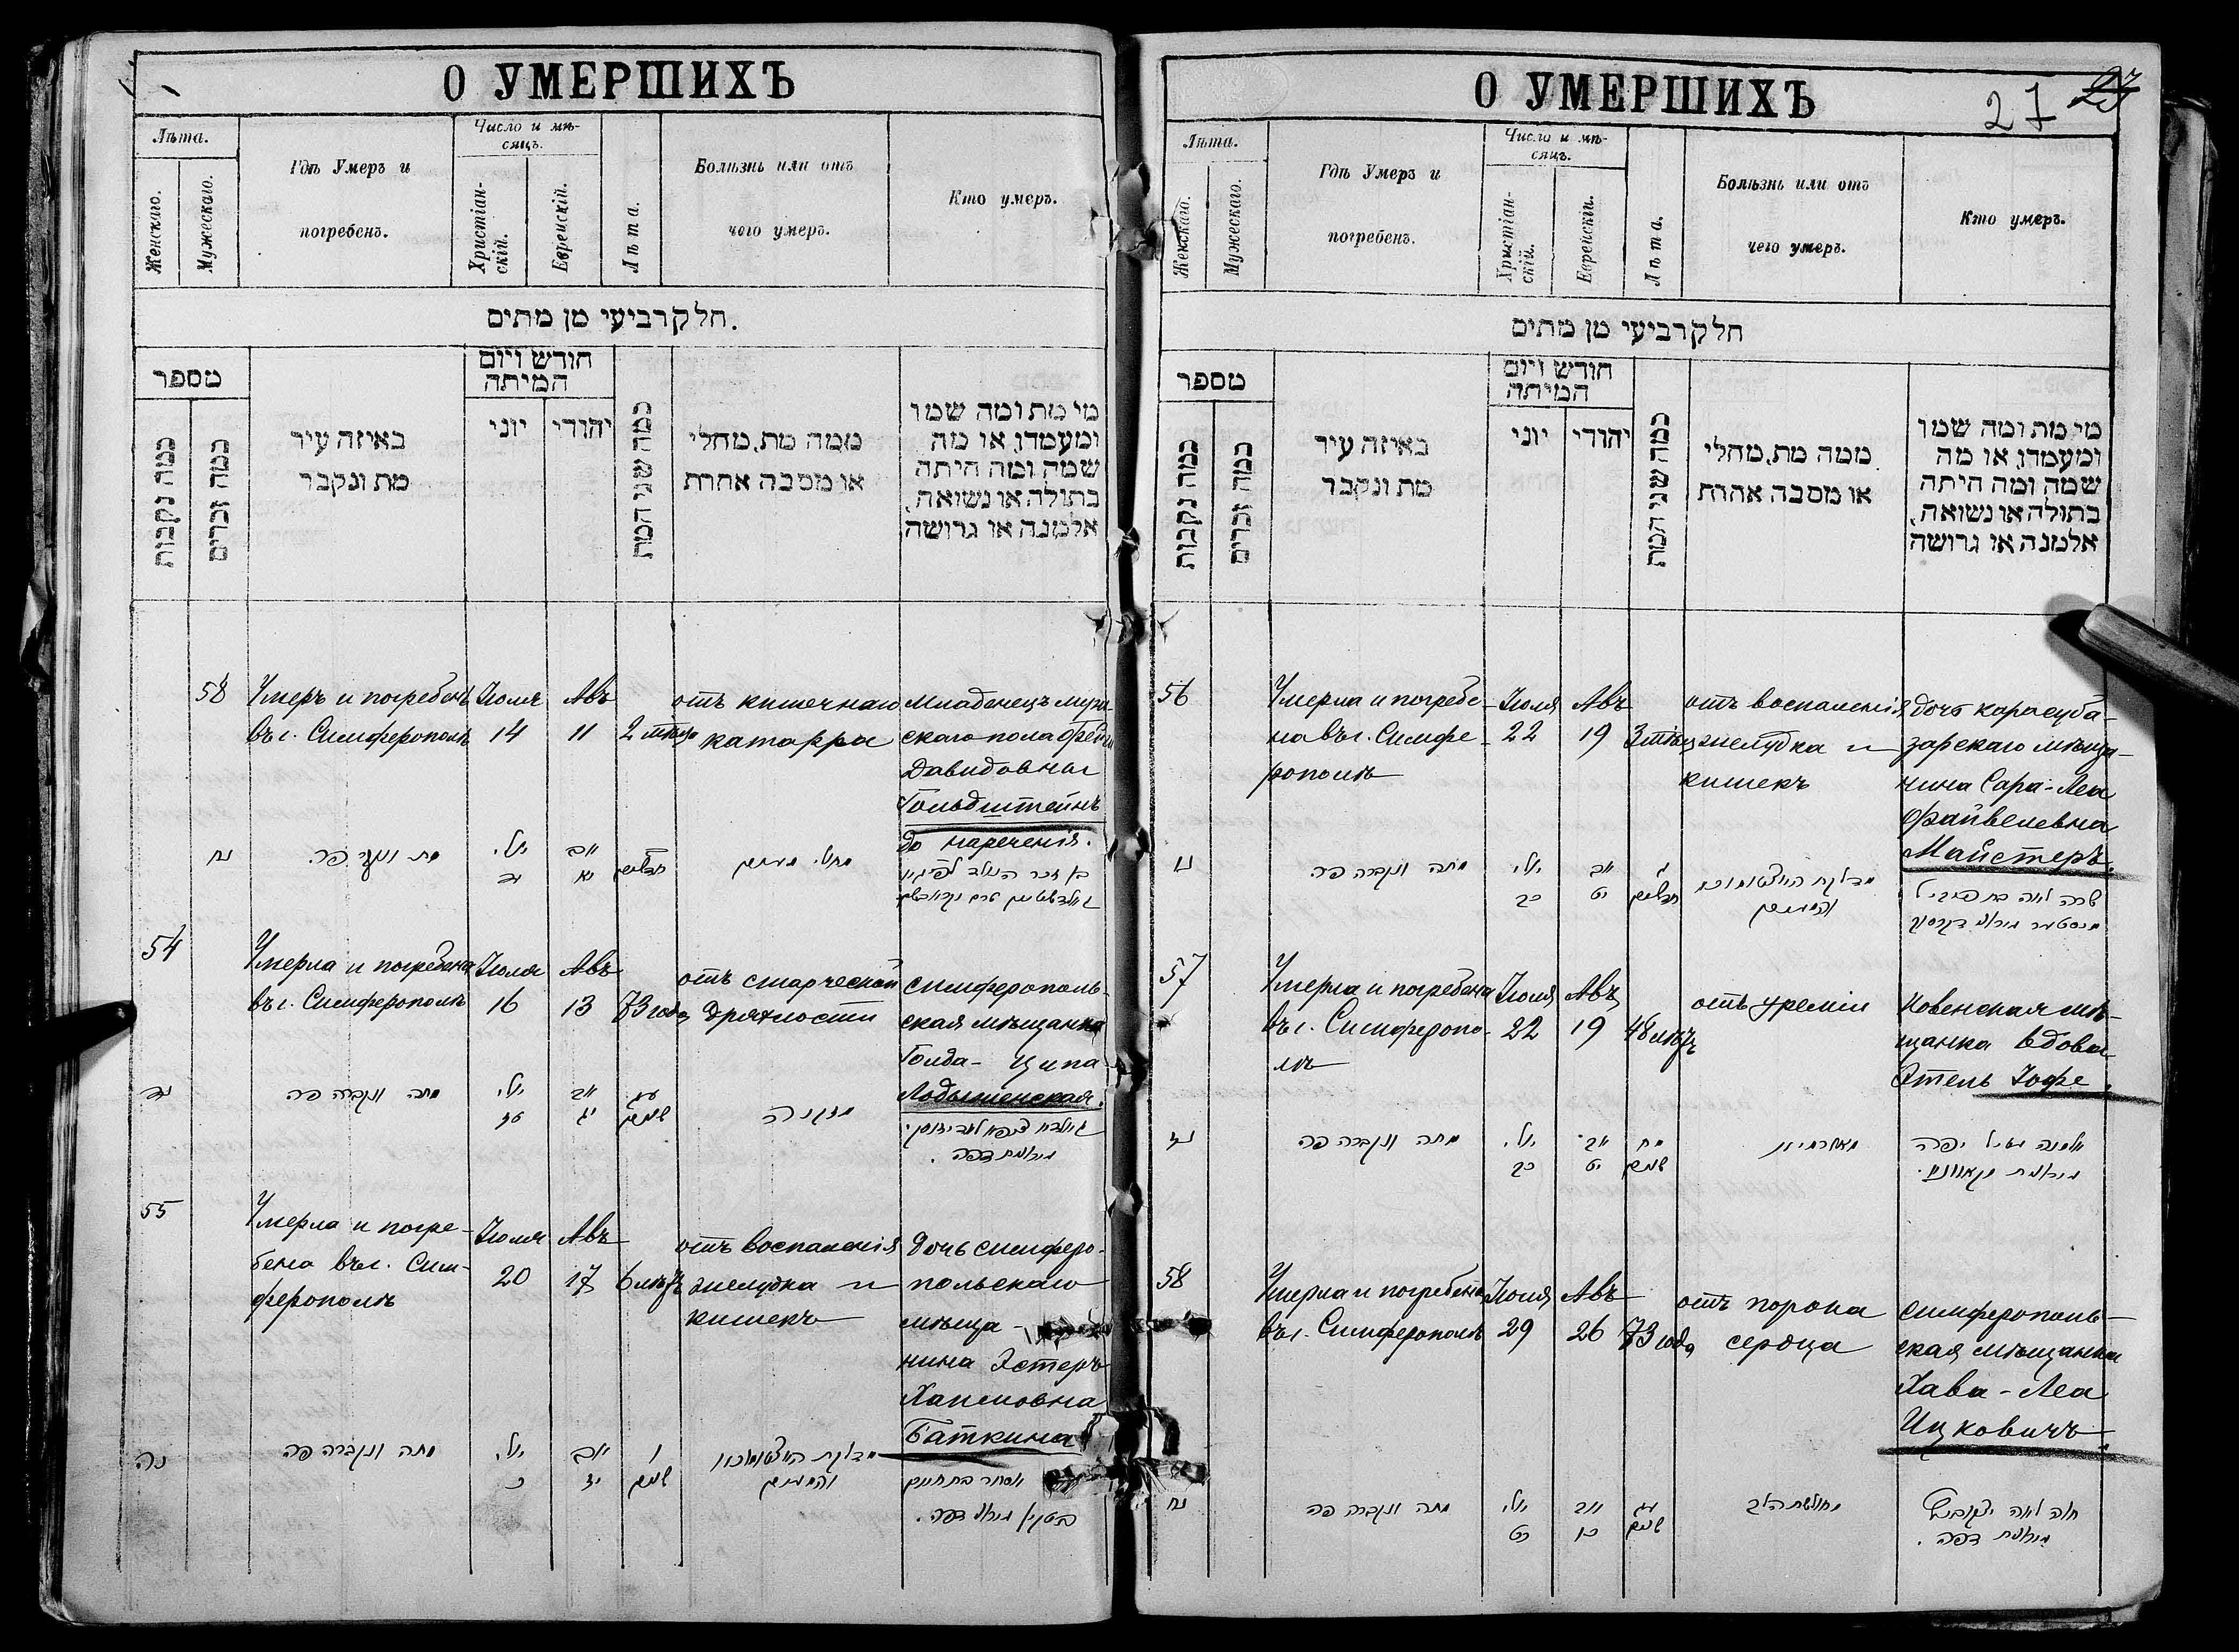 О УМЕРШИХЪ
Лѣта.
Женскаго.
Мужескаго.
Гдѣ Умеръ и
погребенъ.
Число и мѣ-
сяцъ.
Христіан-
скій.
Еврейскій.
Лѣта.
Болѣзнь или отъ
чего умеръ.
Кто умеръ.
חלק רביעי מן מתים.
מספר
כמה נקבות
כמה זכרים
באיזה עיר
מת ונקבר
חודש ויום
המיתה
יוני
יהודי
כמה שני המת
ממה מת, מחלי
או מסבה אחרת
מי מת ומה שמו
ומעמדו, או מה
שמה ומה היתה
בתולה או נשואה,
אלמנה או גרושה
58
Умеръ и погребенъ
въ г. Симферополѣ
Іюля
14
Авъ
11
2 мѣсяца
отъ кишечнаго
катарра
Младенецъ муж
скаго пола
Давидовны
Гольдштейнъ
до нареченія.
נח
מת ונקבר פה.
יולי
יד
אב
יא
חדשים
מחלי מעים
54
Умерла и погребена
въ г. Симферополѣ
Іюля
16
Авъ
13
73 года
отъ старческой
дряхлости
симферополь-
ская мѣщанка
Голда - Ципа
Лодыженская.
נד
מתה ונקברה פה
יולי
טז
אב
יג
עג
שנים
מזקנה
מוראית דפה.
55
Умерла и погре-
бена въ г. Сим-
ферополѣ
Іюля
20
Авъ
17
6 лѣтъ
отъ воспаленія
желудка и
кишекъ
Дочь симферо-
польскаго
мѣща-
нина Эстеръ
Хаимовна
Баткина
נה
מתה ונקברה פה
יולי
כ
אב
יז
ו
שנים
מדלקת
והמעים
אסתר בת חיים
בטקין דפה.
О УМЕРШИХЪ
27
23
Лѣта.
Женскаго.
Мужескаго.
Гдѣ Умеръ и
погребенъ.
Число и мѣ-
сяцъ.
Христіан-
скій.
Еврейскій.
Лѣта.
Болѣзнь или отъ
чего умеръ.
Кто умеръ.
חלק רביעי מן מתים
מספר
כמה נקבות
כמה זכרים
באיזה עיר
מת ונקבר
חודש ויום
המיתה
יוני
יהודי
כמה שני המת
ממה מת, מחלי
או מסבה אחרת
מי מת ומה שמו
ומעמדו, או מה
שמה ומה היתה
בתולה או נשואה,
אלמנה או גרושה
56
Умерла и погребе-
на въ г. Симфе-
рополѣ
Іюля
22
Авъ
19
3 мѣсяц
отъ воспаленія
желудка и
кишекъ
дочь карасуба-
зарскаго мѣща-
нина Сара-Леа
Файвелевна
Майстеръ.
נו
מתה ונקברה פה
יולי
כב
אב
יט
ג
חדשים
מדלקת
והמעים
שרה לאה בת פייביל
57
Умерла и погребена
въ г. Симферопо-
лѣ
Іюля
22
Авъ
19
48 лѣтъ
отъ уреміи
Ковенская мѣ-
щанка вдова
Этель Іофе.
נז
מתה ונקברה פה
יולי
כב
אב
יט
מח
שנים
אלמנה עטיל יפה
58
Умерла и погребена
въ г. Симферополѣ
Іюля
29
Авъ
26
73 года
отъ порока
сердца
симферополь-
ская мѣщанка
Хава-Леа
Ицковичъ.
נח
מתה ונקברה פה
יולי
כט
אב
כו
עג
שנים
מחולשת הלב
חוה לאה יצקוביץ
מוראית דפה.